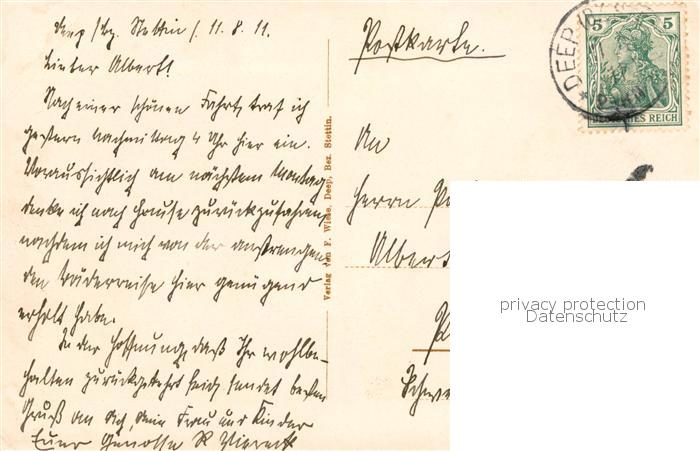 Deep /Bz. Stettin /. 11. 8. 11.
Lieber Albert!
Nach einer schönen Fahrt, traf ich
gestern Nachmittag 4 Uhr hier ein.
Voraussichtlich am nächsten Montag
denke ich nach Hause zurückzufahren,
nachdem ich mich von der anstrengen-
den Räderreise hier genügend
erholt habe.
In der Hoffnung, daß Ihr wohlbe-
halten zurückgekehrt seid, sendet besten
Gruß an dich, deine Frau und Kinder
Euer Genosse R
Verlag von F. Wiese, Deep, Bez. Stettin.
Postkarte.
An
Herrn
Albert
5 5
DEUTSCHES REICH
DEEP
privacy protection
Datenschutz